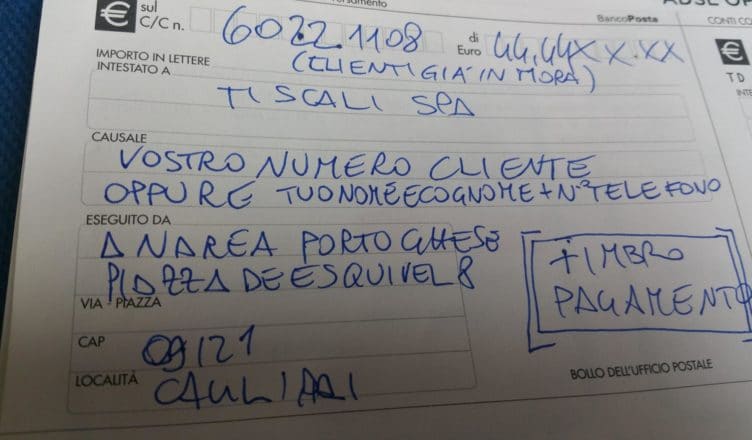 sul
C/C n. 6022.1108
BancoPosta
di
Euro 44,44XX.XX
IMPORTO IN LETTERE
(CLIENTI GIÀ IN MORA)
INTESTATO A
TISCALI SPA
CAUSALE
VOSTRO NUMERO CLIENTE
OPPURE TUO NOME E COGNOME + N° TELEFONO
ESEGUITO DA
ANDREA PORTOGHESE
PIAZZA DE ESQUIVEL 8
VIA - PIAZZA
CAP 09121
LOCALITÀ CAGLIARI
TIMBRO
PAGAMENTO
BOLLO DELL'UFFICIO POSTALE
CONTI CO
TD
INTE